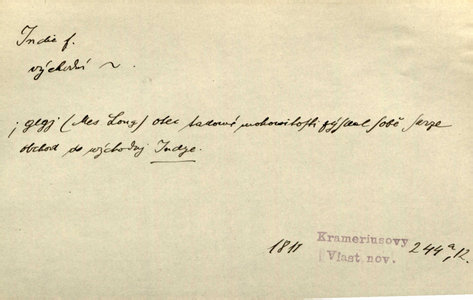 Indie f.
východní ~.
; gegj (Mes Long) otec takowé mohowitosti sobě skrze
obchod do východnj Indye.
1811 Krameriusovy Vlast. nov. 244a,12.